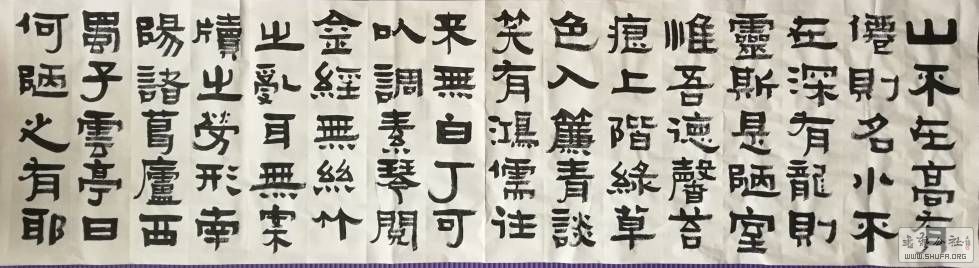 山不在高有
僊則名水不
在深有龍則
靈斯是陋室
惟吾德馨苔
痕上階綠草
色入簾青談
笑有鴻儒往
来無白丁可
以調素琴閱
金經無絲竹
之亂耳無案
牘之勞形南
陽諸葛廬西
蜀子雲亭曰
何陋之有耶
WWW.SHUFA.ORG